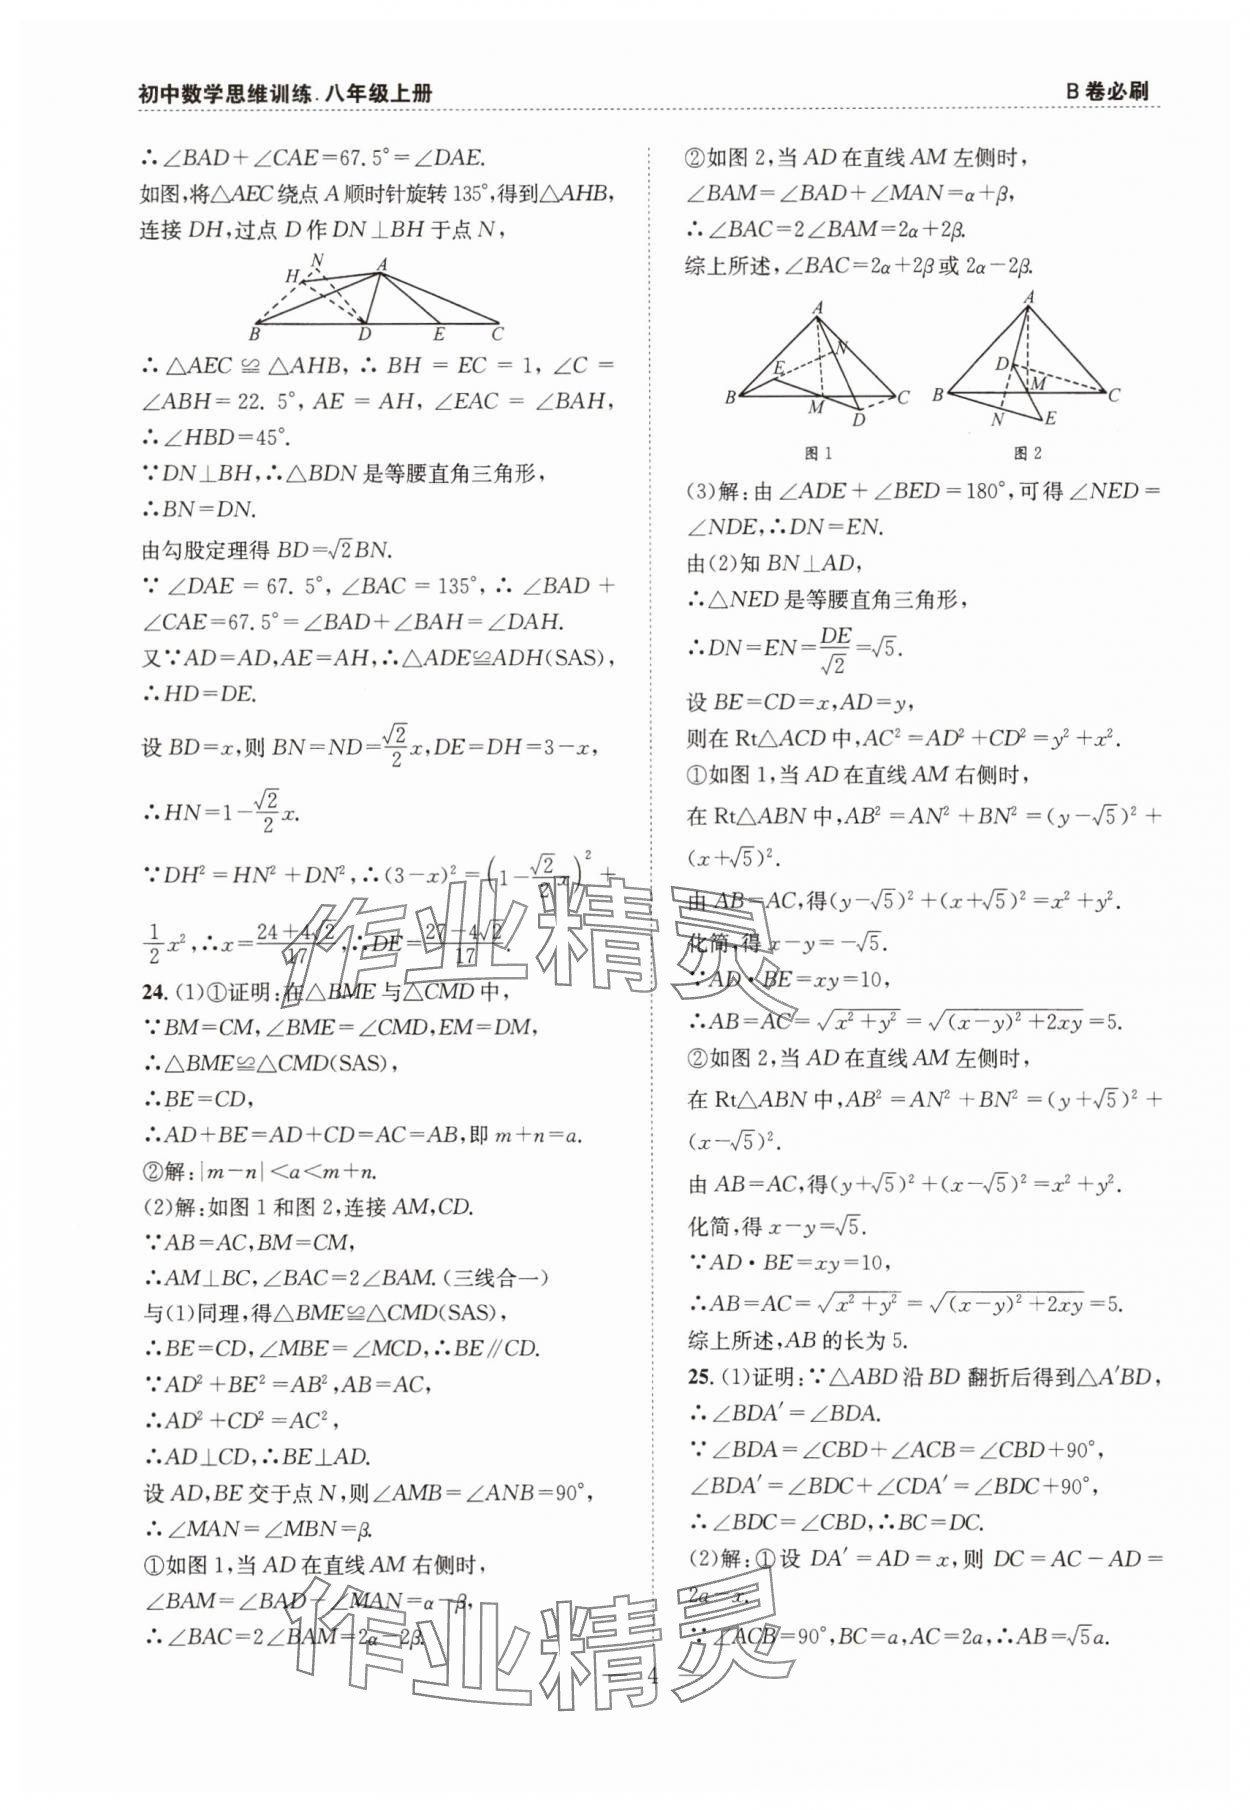 初中数学思维训练.八年级上册
B卷必刷
∴∠BAD+∠CAE=67.5°=∠DAE.
如图,将△AEC绕点A顺时针旋转135°,得到△AHB,
连接DH,过点D作DN⊥BH于点N,
N
H
A
B
D
E
C
∴△AEC≌△AHB,∴BH=EC=1,∠C=
∠ABH=22.5°,AE=AH,∠EAC=∠BAH,
∴∠HBD=45°.
∵DN⊥BH,∴△BDN是等腰直角三角形,
∴BN=DN.
由勾股定理得BD=√2BN.
∵∠DAE=67.5°,∠BAC=135°,∴∠BAD+
∠CAE=67.5°=∠BAD+∠BAH=∠DAH.
又∵AD=AD,AE=AH,∴△ADE≌ADH(SAS),
∴HD=DE.
设BD=x,则BN=ND=√2/2 x,DE=DH=3-x,
∴HN=1-√2/2 x.
∵DH²=HN²+DN²,∴(3-x)²=(1-√2/2 x)²+
1/2 x²,∴x=(24+4√2)/17,∴DE=(27-4√2)/17.
24.(1)①证明:在△BME与△CMD中,
∵BM=CM,∠BME=∠CMD,EM=DM,
∴△BME≌△CMD(SAS),
∴BE=CD,
∴AD+BE=AD+CD=AC=AB,即m+n=a.
②解:|m-n|<a<m+n.
(2)解:如图1和图2,连接AM,CD.
∵AB=AC,BM=CM,
∴AM⊥BC,∠BAC=2∠BAM.(三线合一)
与(1)同理,得△BME≌△CMD(SAS),
∴BE=CD,∠MBE=∠MCD,∴BE∥CD.
∵AD²+BE²=AB²,AB=AC,
∴AD²+CD²=AC²,
∴AD⊥CD,∴BE⊥AD.
设AD,BE交于点N,则∠AMB=∠ANB=90°,
∴∠MAN=∠MBN=β.
①如图1,当AD在直线AM右侧时,
∠BAM=∠BAD-∠MAN=α-β,
∴∠BAC=2∠BAM=2α-2β.
②如图2,当AD在直线AM左侧时,
∠BAM=∠BAD+∠MAN=α+β,
∴∠BAC=2∠BAM=2α+2β.
综上所述,∠BAC=2α+2β或2α-2β.
A
N
E
B
M
D
C
图1
A
D
B
M
C
N
E
图2
(3)解:由∠ADE+∠BED=180°,可得∠NED=
∠NDE,∴DN=EN.
由(2)知BN⊥AD,
∴△NED是等腰直角三角形,
∴DN=EN=DE/√2=√5.
设BE=CD=x,AD=y,
则在Rt△ACD中,AC²=AD²+CD²=y²+x².
①如图1,当AD在直线AM右侧时,
在Rt△ABN中,AB²=AN²+BN²=(y-√5)²+
(x+√5)².
由AB=AC,得(y-√5)²+(x+√5)²=x²+y².
化简,得x-y=-√5.
∵AD·BE=xy=10,
∴AB=AC=√(x²+y²)=√((x-y)²+2xy)=5.
②如图2,当AD在直线AM左侧时,
在Rt△ABN中,AB²=AN²+BN²=(y+√5)²+
(x-√5)².
由AB=AC,得(y+√5)²+(x-√5)²=x²+y².
化简,得x-y=√5.
∵AD·BE=xy=10,
∴AB=AC=√(x²+y²)=√((x-y)²+2xy)=5.
综上所述,AB的长为5.
25.(1)证明:∵△ABD沿BD翻折后得到△A′BD,
∴∠BDA′=∠BDA.
∵∠BDA=∠CBD+∠ACB=∠CBD+90°,
∠BDA′=∠BDC+∠CDA′=∠BDC+90°,
∴∠BDC=∠CBD,∴BC=DC.
(2)解:①设DA′=AD=x,则DC=AC-AD=
2a-x.
∵∠ACB=90°,BC=a,AC=2a,∴AB=√5a.
— 4 —
作业精灵
作业精灵